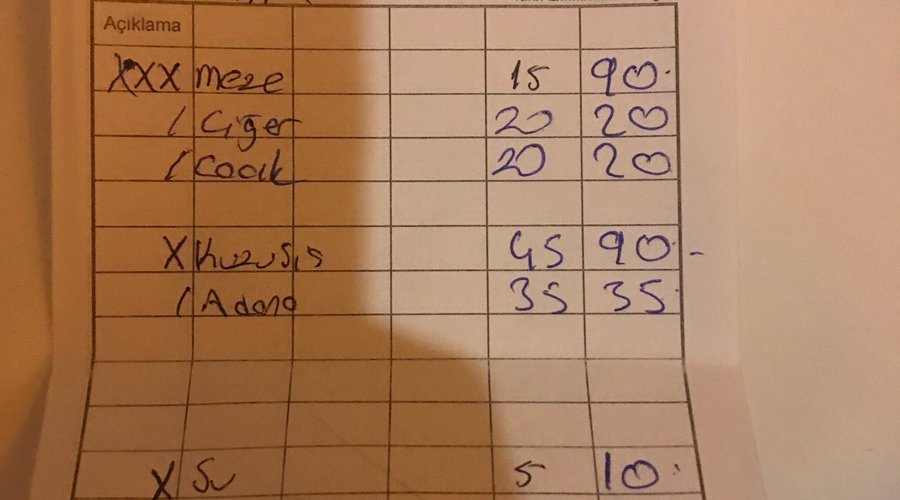 Açıklama
XXX Meze 15 90.
/ Ciğer 20 20
/ Cacık 20 20
X Kuzu Şiş 45 90.-
/ Adana 35 35.
X Su 5 10.